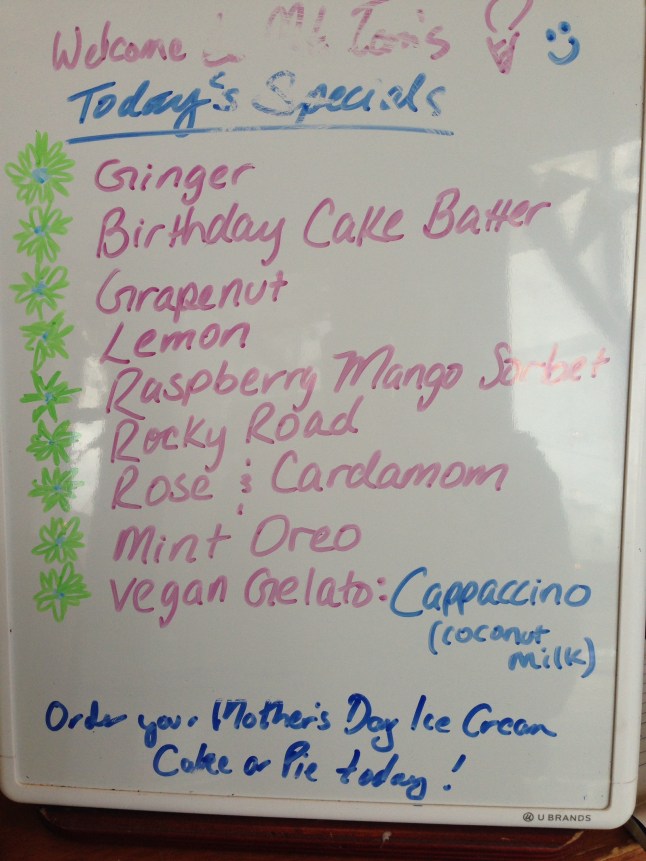 Welcome to Mt. Tom's
Today's Specials
Ginger
Birthday Cake Batter
Grapenut
Lemon
Raspberry Mango Sorbet
Rocky Road
Rose & Cardamom
Mint Oreo
Vegan Gelato: Cappaccino
(coconut
milk)
Order your Mother's Day Ice Cream
Cake or Pie today!
U BRANDS